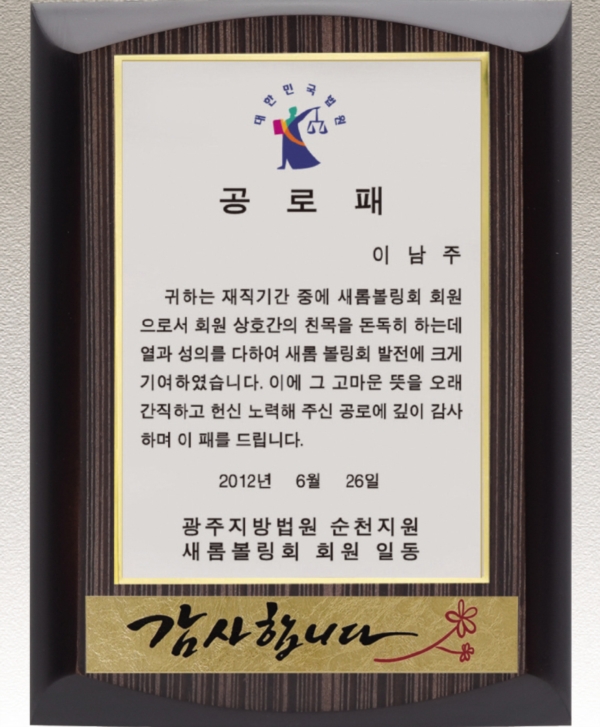 대한민국법원
공로패
이남주
귀하는 재직기간 중에 새롬볼링회 회원
으로서 회원 상호간의 친목을 돈독히 하는데
열과 성의를 다하여 새롬 볼링회 발전에 크게
기여하였습니다. 이에 그 고마운 뜻을 오래
간직하고 헌신 노력해 주신 공로에 깊이 감사
하며 이 패를 드립니다.
2012년 6월 26일
광주지방법원 순천지원
새롬볼링회 회원 일동
감사합니다